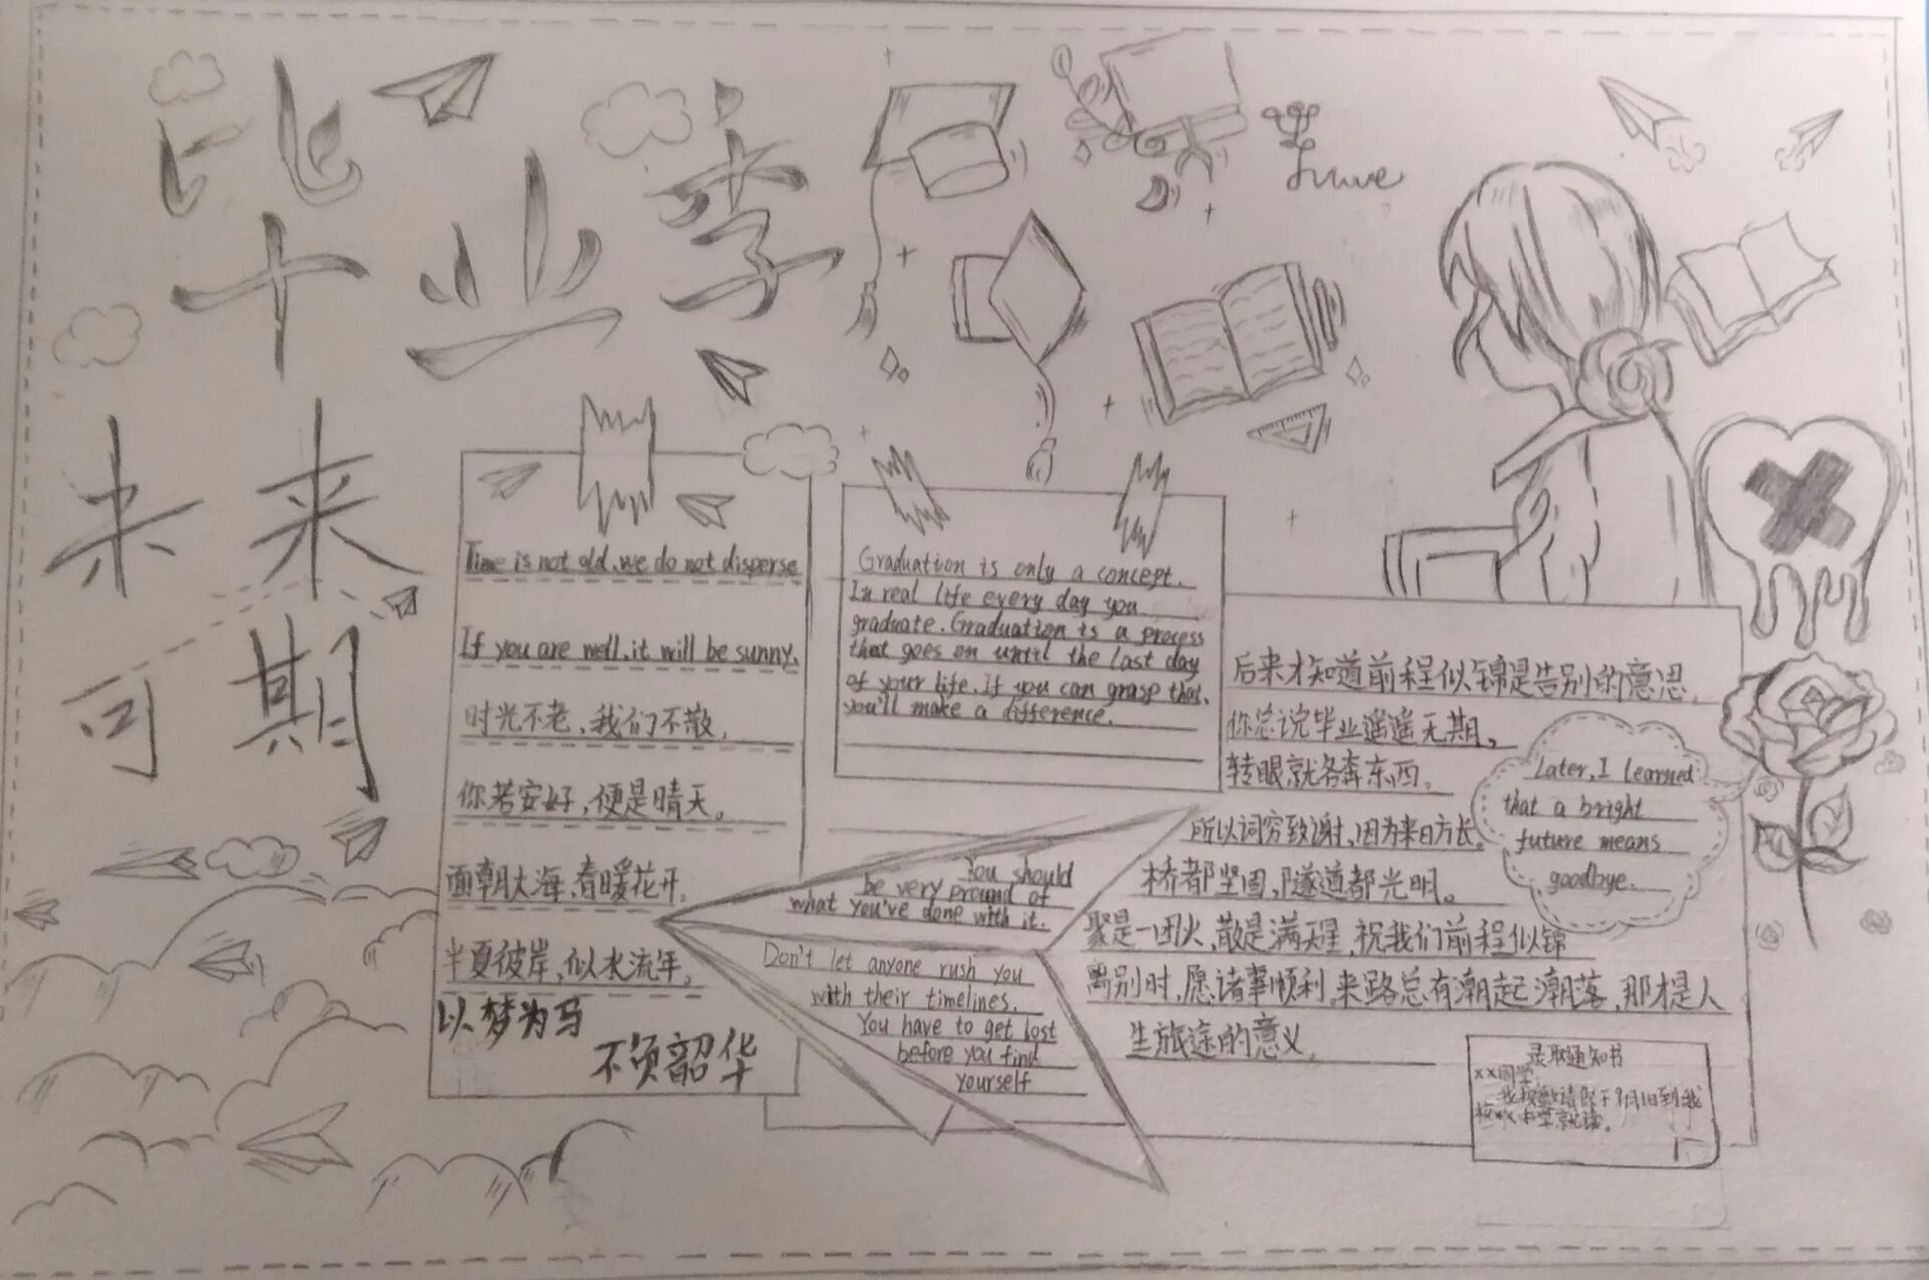 毕业季
未来
可期
Time is not old, we do not disperse
If you are well, it will be sunny.
时光不老，我们不散，
你若安好，便是晴天。
面朝大海，春暖花开。
半夏彼岸，似水流年。
以梦为马
不负韶华
Graduation is only a concept.
In real life every day you
graduate. Graduation is a process
that goes on until the last day
of your life. If you can grasp that,
you'll make a difference.
You should
be very pround of
what you've done with it.
Don't let anyone rush you
with their timelines.
You have to get lost
before you find
yourself
后来才知道前程似锦是告别的意思，
你总说毕业遥遥无期，
转眼就各奔东西。
所以词穷致谢，因为来日方长。
桥都坚固，隧道都光明。
聚是一团火，散是满天星，祝我们前程似锦
离别时，愿诸事顺利，来路总有潮起潮落，那才是人
生旅途的意义。
Later, I learned
that a bright
future means
goodbye.
录取通知书
××同学
我校邀请你于9月1日到我
校××中学就读。